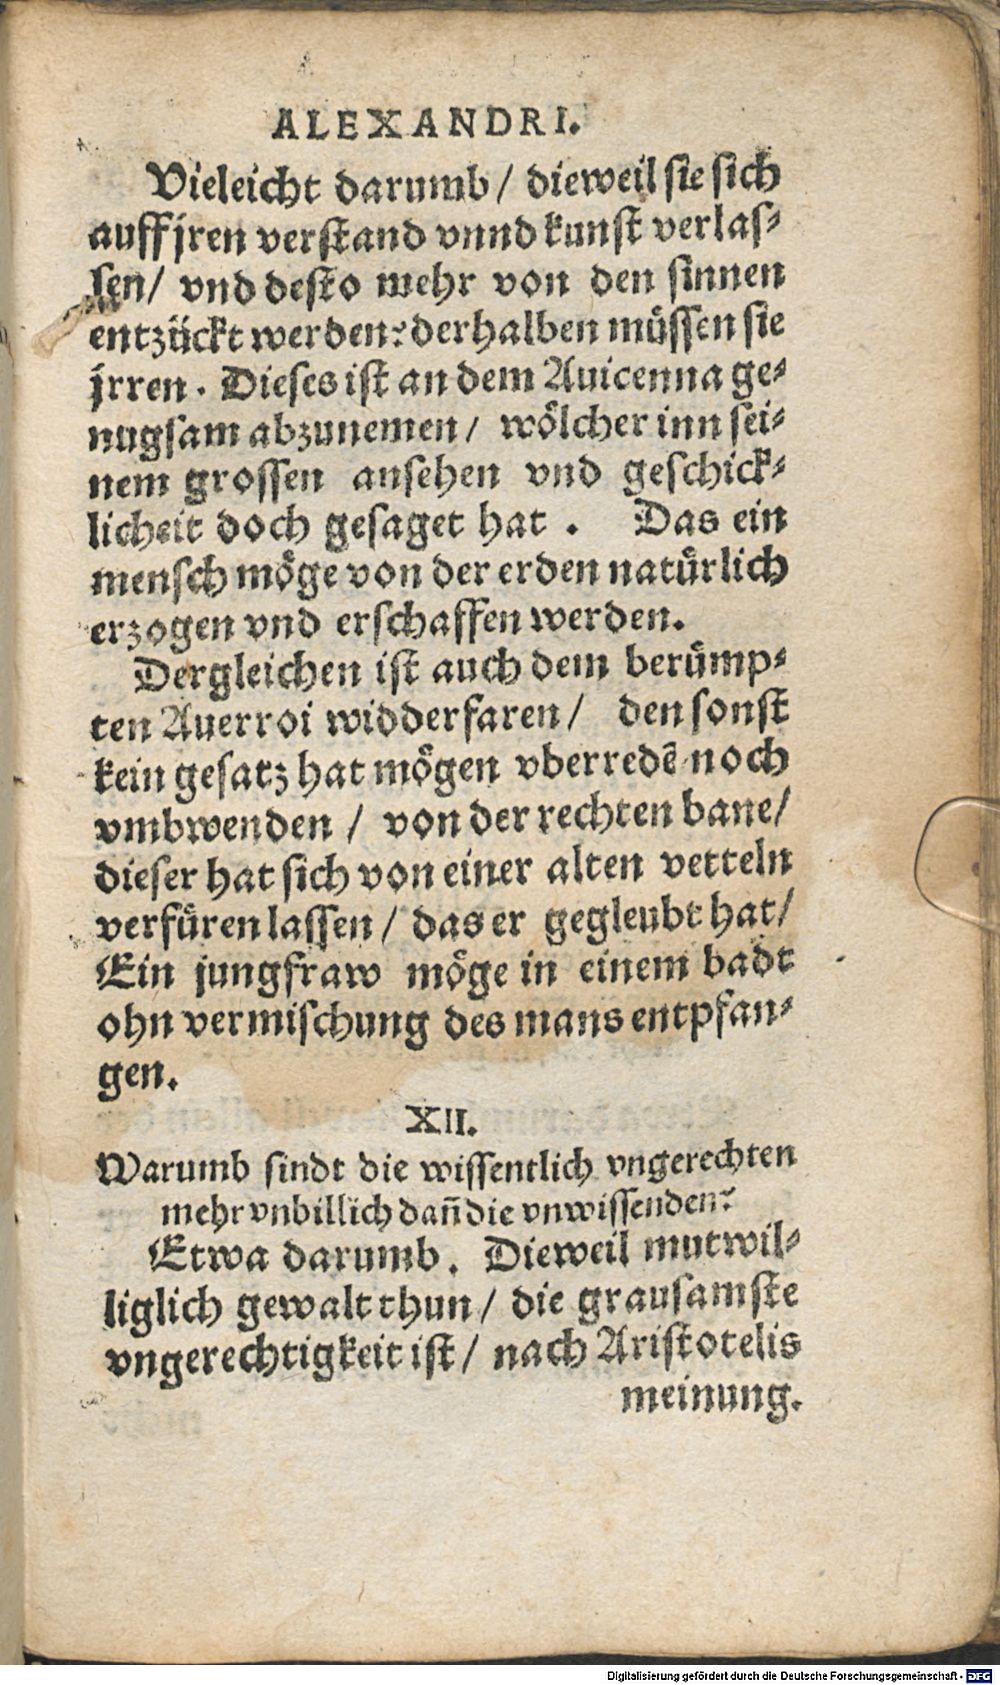 ALEXANDRI.
Vieleicht darumb / dieweil sie sich
auff jren verstand vnnd kunst verlas-
sen / vnd desto mehr von den sinnen
entzückt werden: derhalben müssen sie
jrren. Dieses ist an dem Auicenna ge-
nugsam abzunemen / wölcher inn sei-
nem grossen ansehen vnd geschick-
licheit doch gesaget hat. Das ein
mensch möge von der erden natürlich
erzogen vnd erschaffen werden.
Dergleichen ist auch dem berümp-
ten Auerroi widderfaren / den sonst
kein gesatz hat mögen vberredē noch
vmbwenden / von der rechten bane /
dieser hat sich von einer alten vetteln
verfüren lassen / das er gegleubt hat /
Ein jungfraw möge in einem badt
ohn vermischung des mans entpfan-
gen.
XII.
Warumb sindt die wissentlich vngerechten
mehr vnbillich dañ die vnwissenden?
Etwa darumb. Dieweil mutwil-
liglich gewalt thun / die grausamste
vngerechtigkeit ist / nach Aristotelis
meinung.
Digitalisierung gefördert durch die Deutsche Forschungsgemeinschaft - DFG